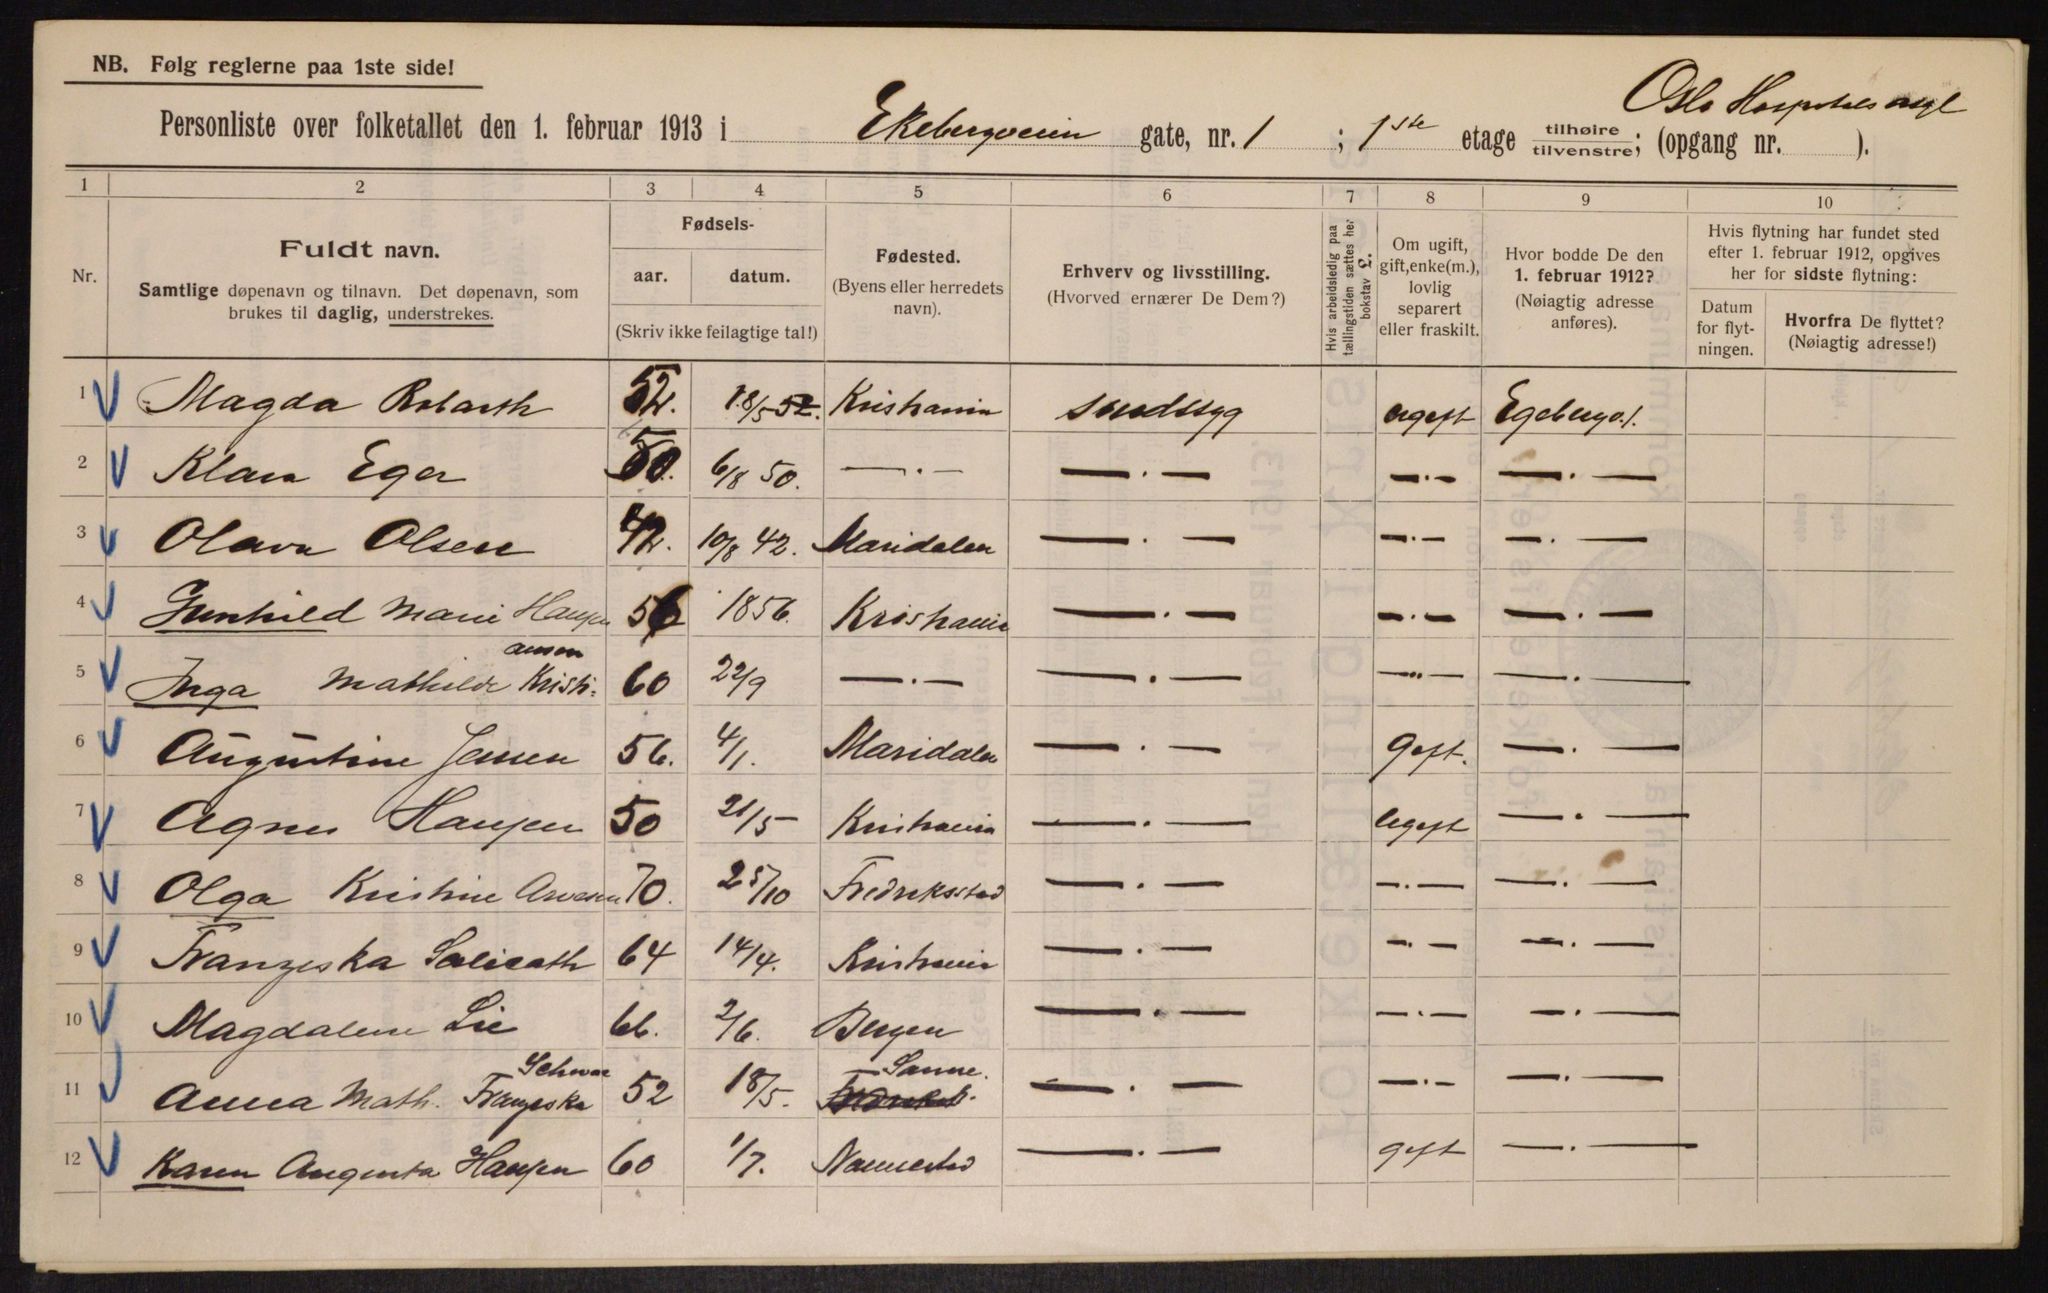 NB. Følg reglerne paa 1ste side!
Oslo Hospitals
Personliste over folketallet den 1. februar 1913 i Ekebergveien gate, nr. 1 ; 1ste etage tilhøire / tilvenstre; (opgang nr. ).
1 2 3 4 5 6 7 8 9 10
Nr.
Fuldt navn.
Samtlige døpenavn og tilnavn. Det døpenavn, som
brukes til daglig, understrekes.
Fødsels-
aar. datum.
(Skriv ikke feilagtige tal!)
Fødested.
(Byens eller herredets
navn).
Erhverv og livsstilling.
(Hvorved ernærer De Dem?)
Hvis arbeidsledig paa
tællingstiden sættes her
bokstav L.
Om ugift,
gift, enke(m.),
lovlig
separert
eller fraskilt.
Hvor bodde De den
1. februar 1912?
(Nøiagtig adresse
anføres).
Hvis flytning har fundet sted
efter 1. februar 1912, opgives
her for sidste flytning:
Datum
for flyt-
ningen.
Hvorfra De flyttet?
(Nøiagtig adresse!)
1 Magda Robarth 52. 18/5 52. Kristiania sindssyg ugift Egebergv. 1.
2 Klara Eger 50. 6/8 50. —.— —.— —.— —.—
3 Olava Olsen 42. 10/8 42. Maridalen —.— —.— —.—
4 Gunhild Marie Hansen 56 1856. Kristiania —.— —.— —.—
5 Inga Mathilde Kristi- ansen 60 22/9 —.— —.— —.— —.—
6 Augustine Jensen 56. 4/1. Maridalen —.— gift. —.—
7 Agnes Hansen 50 21/5 Kristiania —.— ugift —.—
8 Olga Kristine 70. 25/10 Fredriksstad —.— —.— —.—
9 Franzeska Salicath 64 14/4. Kristiania —.— —.— —.—
10 Magdalene Lie 66. 2/6. Bergen —.— —.— —.—
11 Anna Math. Franzeska 52 18/5. Sanne. —.— —.— —.—
12 Karen Augusta Hansen 60 1/7. Nannestad —.— gift —.—